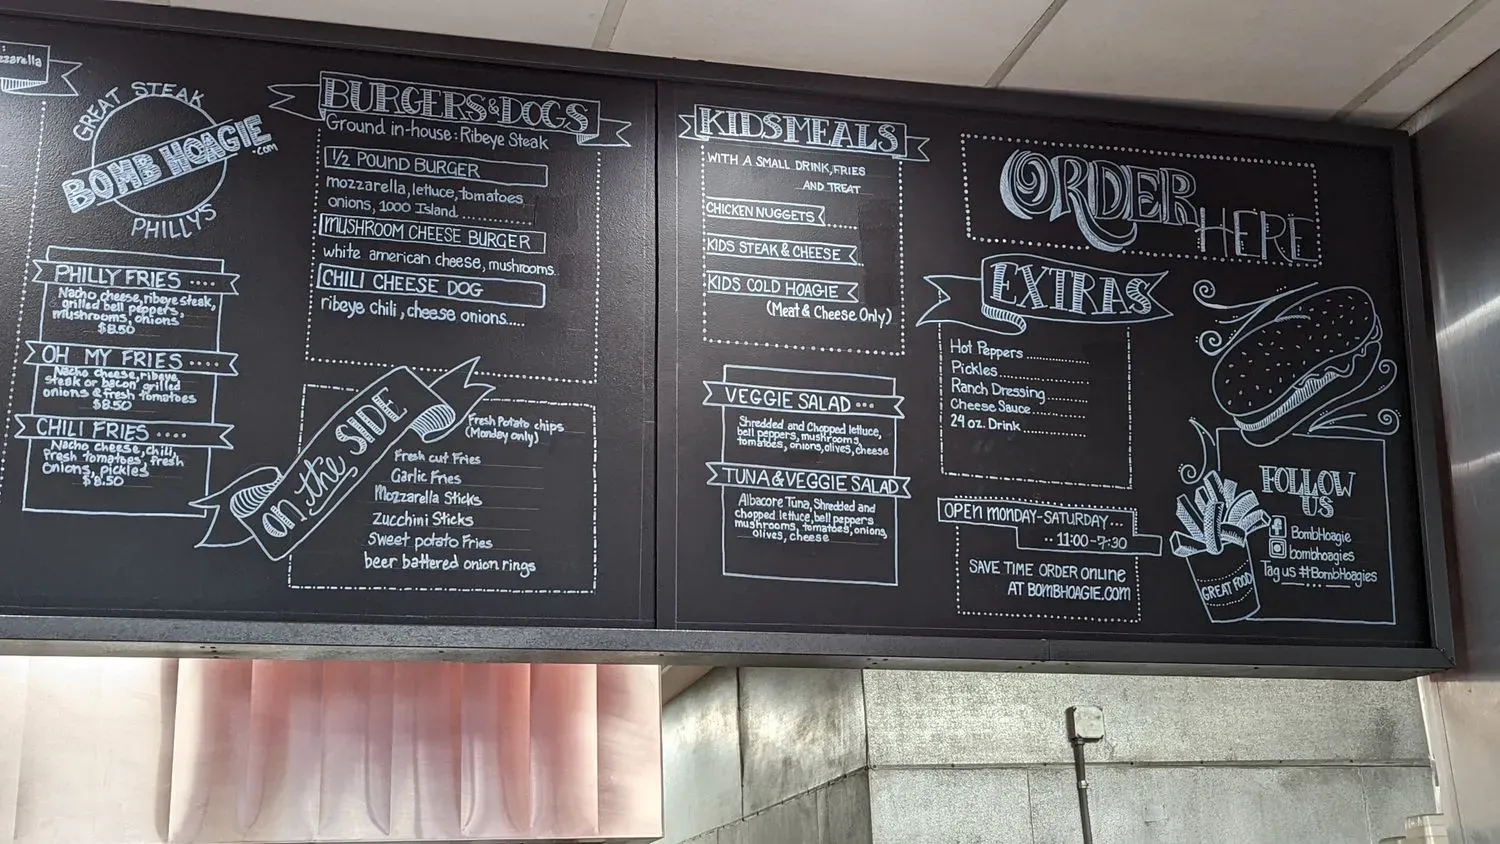 zzarella
GREAT STEAK
BOMB HOAGIE
.COM
PHILLYS
PHILLY FRIES ....
Nacho cheese, ribeye steak,
grilled bell peppers,
mushrooms, onions
$8.50
OH MY FRIES ....
Nacho cheese, ribeye
steak or bacon grilled
onions & fresh tomatoes
$8.50
CHILI FRIES ....
Nacho cheese, chili,
fresh tomatoes, fresh
onions, pickles
$8.50
BURGERS & DOGS
Ground in-house: Ribeye Steak
1/2 POUND BURGER
mozzarella, lettuce, tomatoes
onions, 1000 Island..........
MUSHROOM CHEESE BURGER
white american cheese, mushrooms.
CHILI CHEESE DOG
ribeye chili, cheese onions.....
on the SIDE
Fresh Potato chips
(Monday only)
Fresh cut Fries
Garlic Fries
Mozzarella Sticks
Zucchini Sticks
Sweet potato Fries
beer battered onion rings
KIDS MEALS
WITH A SMALL DRINK, FRIES
AND TREAT
CHICKEN NUGGETS
KIDS STEAK & CHEESE
KIDS COLD HOAGIE
(Meat & Cheese Only)
VEGGIE SALAD ...
Shredded and Chopped lettuce,
bell peppers, mushrooms,
tomatoes, onions, olives, cheese
TUNA & VEGGIE SALAD
Albacore Tuna, Shredded and
chopped lettuce, bell peppers
mushrooms, tomatoes, onions,
olives, cheese
ORDER
HERE
EXTRAS
Hot Peppers..............
Pickles..................
Ranch Dressing...........
Cheese Sauce.............
24 oz. Drink.............
OPEN MONDAY-SATURDAY...
..11:00-7:30
SAVE TIME ORDER ONLINE
AT BOMBHOAGIE.COM
FOLLOW
US
BombHoagie
bombhoagies
Tag us #BombHoagies
GREAT FOOD